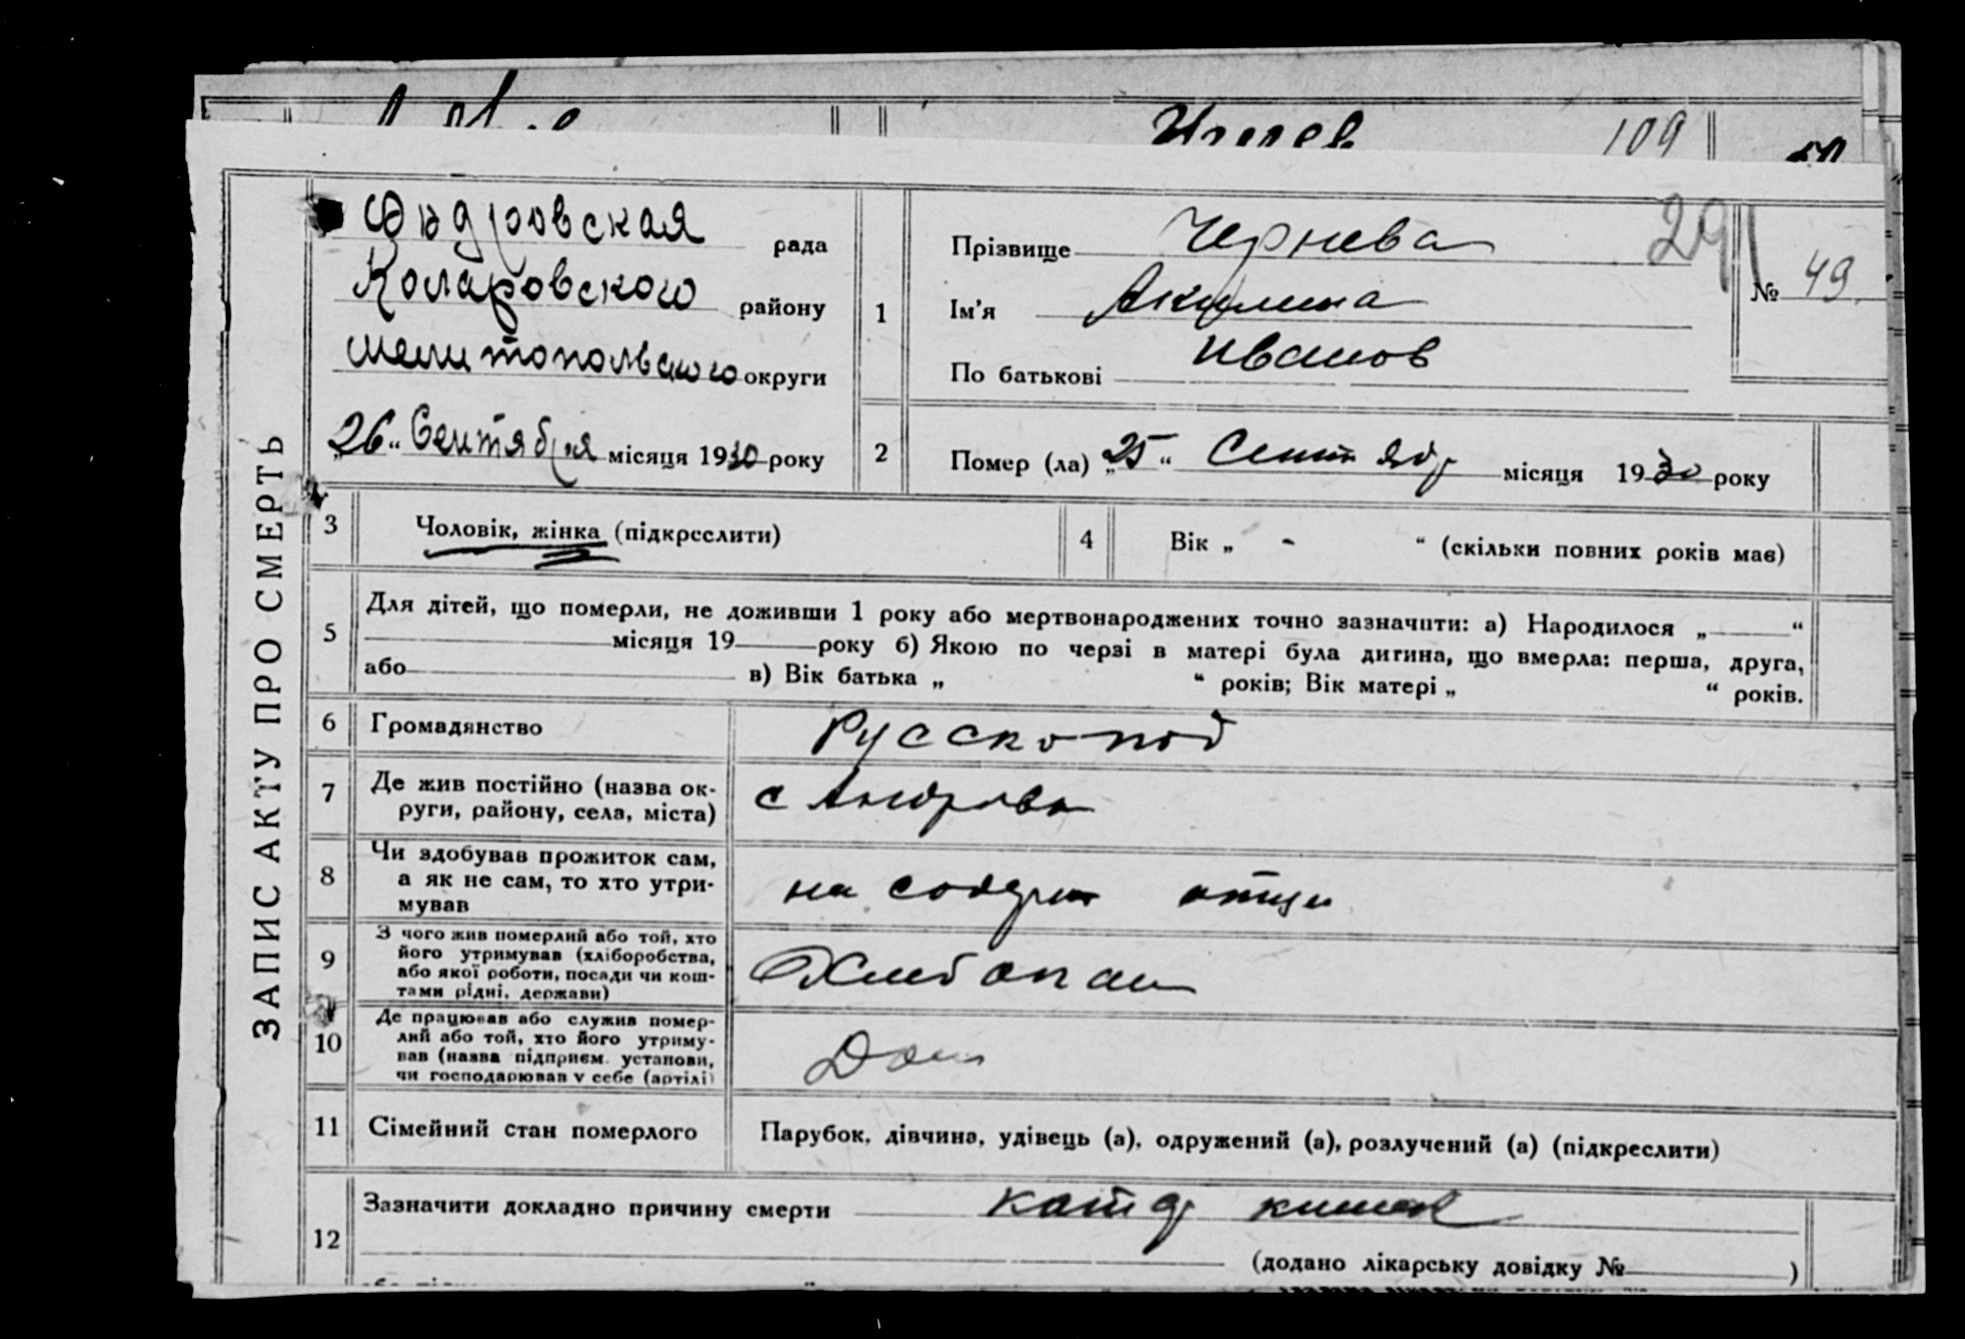 109
Андровская рада
Коларовского району
Мелитопольского округи
„26“ Сентября місяця 1930 року
ЗАПИС АКТУ ПРО СМЕРТЬ
1
Прізвище Чернева
29
№ 49.
Ім'я Акулина
По батькові Иванов
2
Помер (ла) „25“ Сентябр місяця 1930 року
3
Чоловік, жінка (підкреслити)
4
Вік „ - “ (скільки повних років має)
5
Для дітей, що померли, не доживши 1 року або мертвонароджених точно зазначити: а) Народилося „ “
місяця 19 року б) Якою по черзі в матері була дитина, що вмерла: перша, друга,
або в) Вік батька „ “ років; Вік матері „ “ років.
6
Громадянство
Русскопод
7
Де жив постійно (назва ок-
руги, району, села, міста)
с Андровка
8
Чи здобував прожиток сам,
а як не сам, то хто утри-
мував
на содерж отца
9
З чого жив померлий або той, хто
його утримував (хліборобства,
або якої роботи, посади чи кош-
тами рідні, держави)
Хлебопаш
10
Де працював або служив помер-
лий або той, хто його утриму-
вав (назва підприєм. установи,
чи господарював у себе (артілі)
Дом
11
Сімейний стан померлого
Парубок, дівчина, удівець (а), одружений (а), розлучений (а) (підкреслити)
12
Зазначити докладно причину смерти катар кишек
(додано лікарську довідку № )